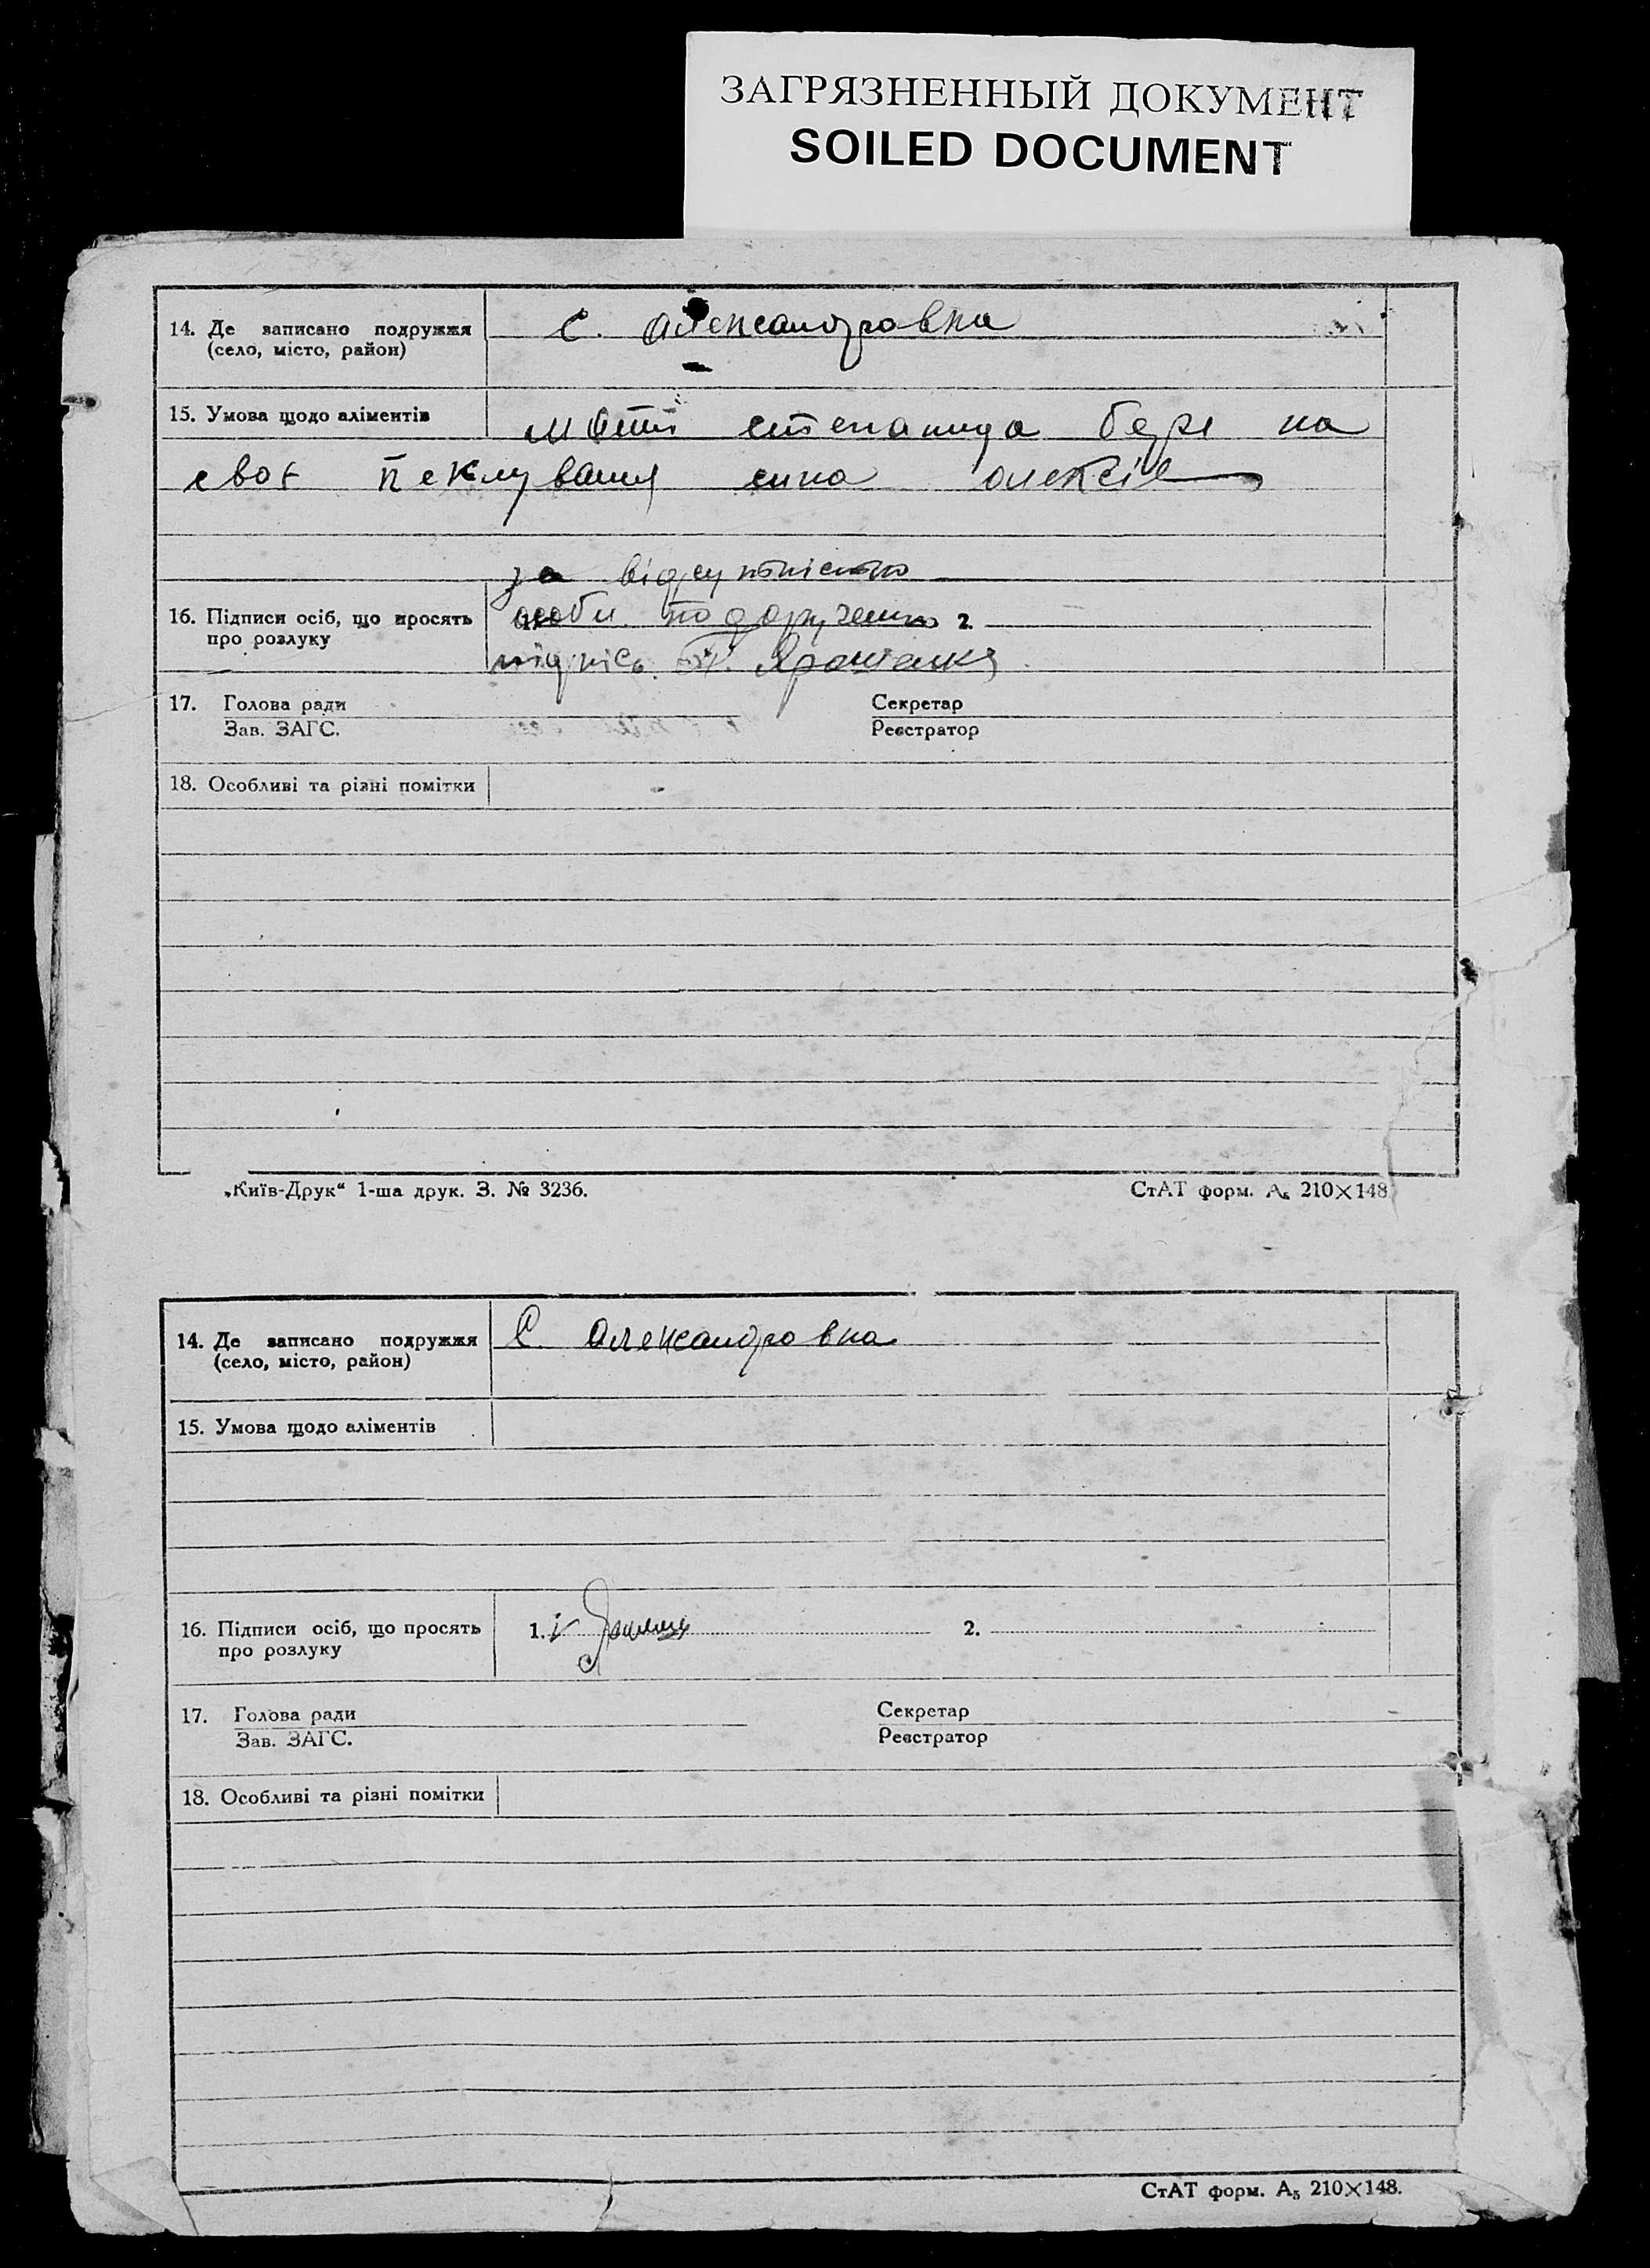 ЗАГРЯЗНЕННЫЙ ДОКУМЕНТ
SOILED DOCUMENT
14. Де записано подружжя
(село, місто, район)
С. Александровка
15. Умова щодо аліментів
мати степанида бере на
своє пеклування сина олексія
за відсутністю
16. Підписи осіб, що просять
про розлуку
особи по дорученню 2.
підпись
17. Голова ради
Зав. ЗАГС.
Секретар
Реєстратор
18. Особливі та різні помітки
„Київ-Друк“ 1-ша друк. З. № 3236.
СтАТ форм. А₅ 210×148
14. Де записано подружжя
(село, місто, район)
С. Александровка
15. Умова щодо аліментів
16. Підписи осіб, що просять
про розлуку
1.
2.
17. Голова ради
Зав. ЗАГС.
Секретар
Реєстратор
18. Особливі та різні помітки
СтАТ форм. А₅ 210×148.